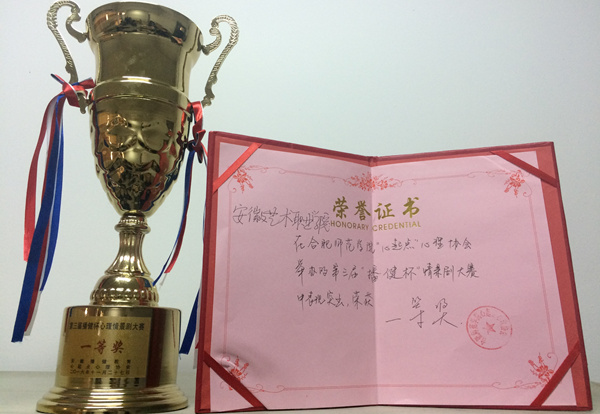 第三届播健杯心理情景剧大赛
一等奖
荣誉证书
HONORARY CREDENTIAL
安徽艺术职业学院
在合肥师范学院"心起点"心协会
举办的第三届"播健杯"情景剧大赛
中表现突出,荣获
一等奖